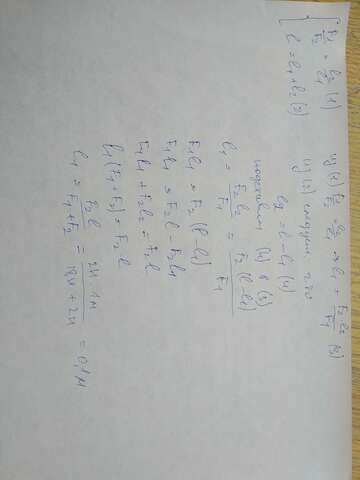 F₁/F₂ = l₂/l₁ (1)
l = l₁ + l₂ (2)
из (1) F₁/F₂ = l₂/l₁ => l₁ = F₂l₂/F₁ (3)
из (2) следует, что
l₂ = l - l₁ (4)
подставим (4) в (3)
l₁ = F₂l₂/F₁ = F₂(l-l₁)/F₁
F₁l₁ = F₂(l-l₁)
F₁l₁ = F₂l - F₂l₁
F₁l₁ + F₂l₂ = F₂l
l₁(F₁+F₂) = F₂l
l₁ = F₂l/(F₁+F₂) = 2Н·1м/(18Н + 2Н) = 0,1м